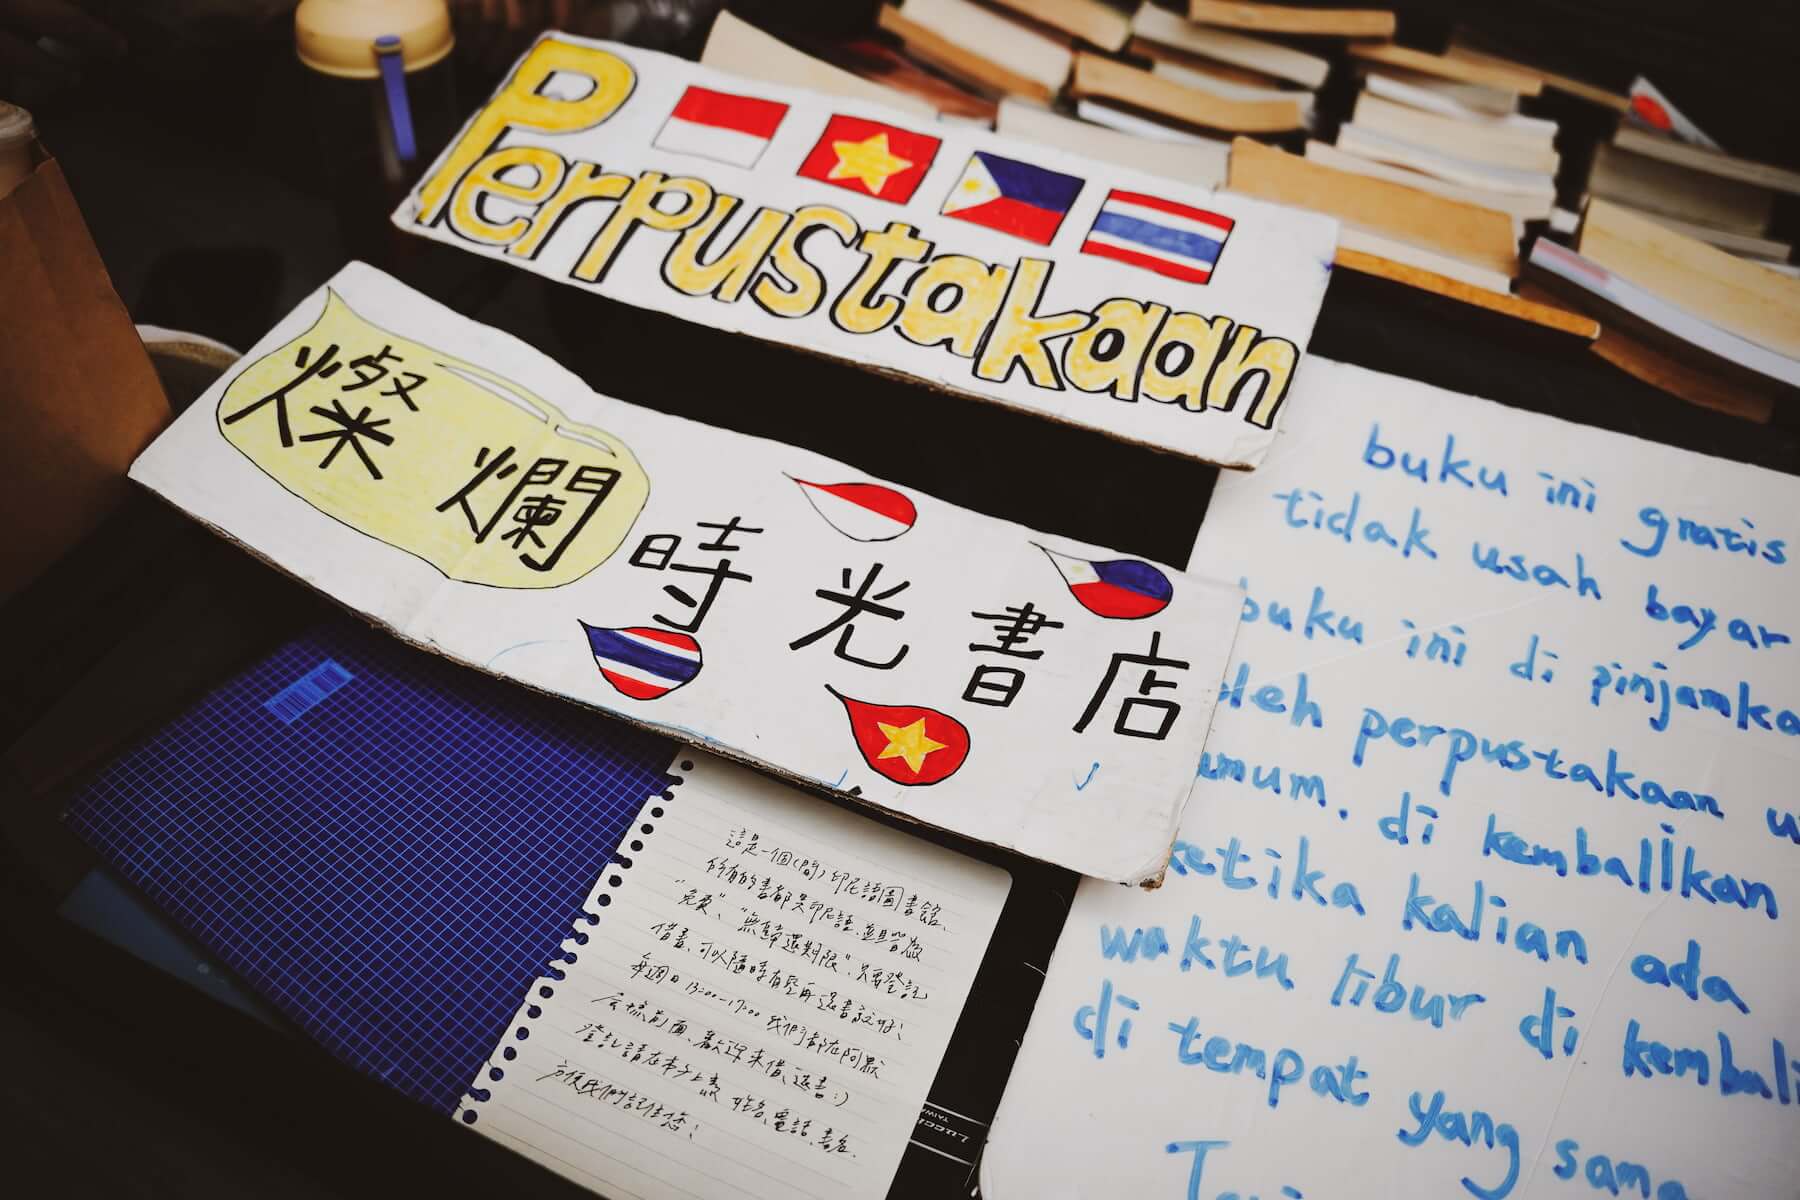 Perpustakaan
燦爛時光書店
buku ini gratis
tidak usah bayar
buku ini di pinjamka
oleh perpustakaan u
umum. di kembalikan
ketika kalian ada
waktu libur di kembali
di tempat yang sama
這是一個(間)印尼語圖書館、
所有的書都是印尼語、並且皆為
"免費"、"無歸還期限"、只要登記
借書、可以隨時有空再還書就好!
每週日 13:00-17:00 我們都在
前面、歡迎來借、還書:)
登記請在本子上 姓名、電話、書名、
方便我們記住您!
TAIWAN